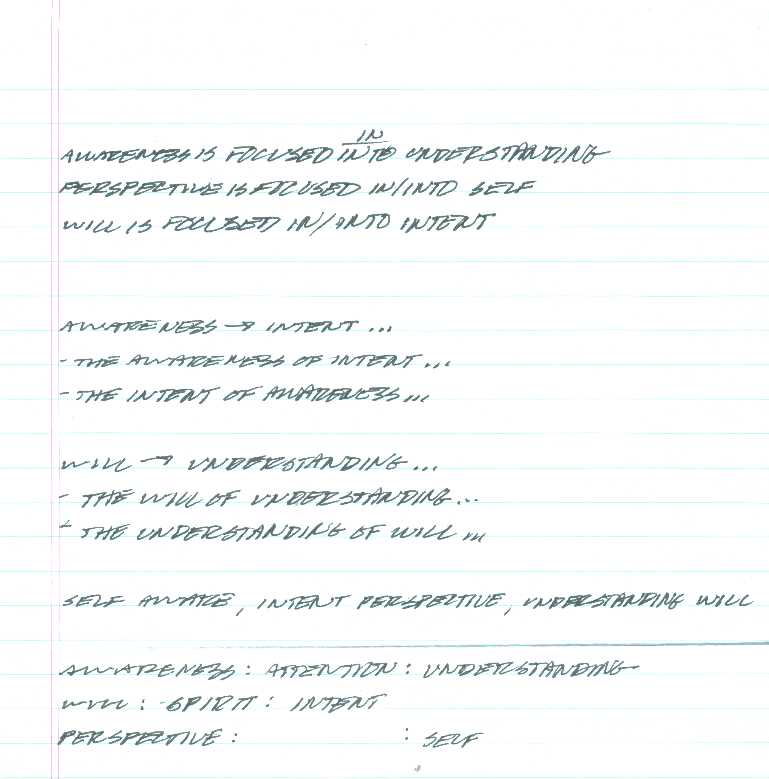 IN
AWARENESS IS FOCUSED INTO UNDERSTANDING
PERSPECTIVE IS FOCUSED IN/INTO SELF
WILL IS FOCUSED IN/INTO INTENT
AWARENESS → INTENT ...
- THE AWARENESS OF INTENT ...
- THE INTENT OF AWARENESS ...
WILL → UNDERSTANDING ...
- THE WILL OF UNDERSTANDING ...
- THE UNDERSTANDING OF WILL ...
SELF AWARE, INTENT PERSPECTIVE, UNDERSTANDING WILL
AWARENESS : ATTENTION : UNDERSTANDING
WILL : SPIRIT : INTENT
PERSPECTIVE : : SELF